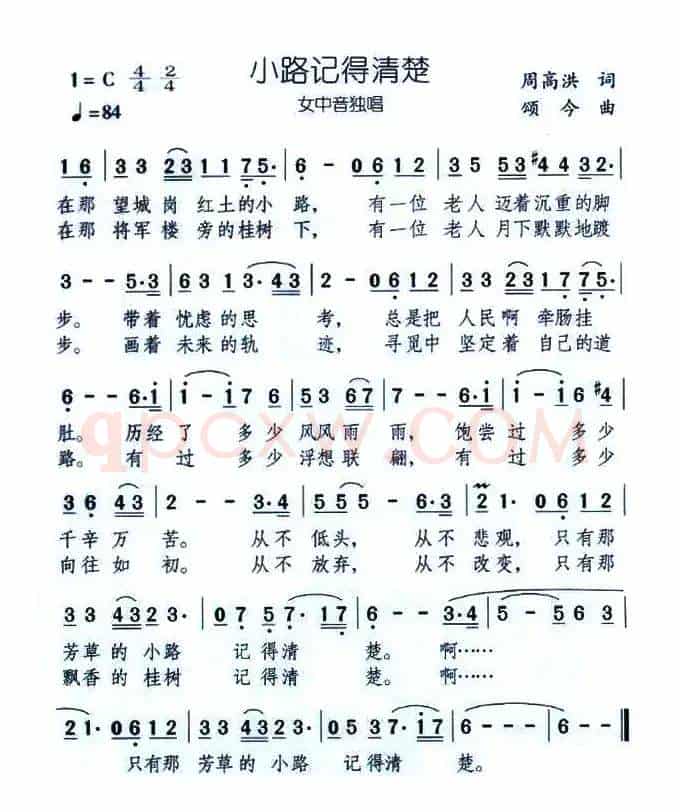 小路记得清楚
1=C 4/4 2/4
♩=84
女中音独唱
周高洪 词
颂今 曲
16 | 33 2311 75· | 6 - 0612 | 35 53 #44 32· |
在那 望城 岗 红土的小 路， 有一位 老人 迈着沉重的脚
在那 将军 楼 旁的桂树 下， 有一位 老人 月下默默地踱
3 - - 5·3 | 63 31 3·43 | 2 - 0612 | 33 2317 75· |
步。 带着 忧虑的思 考， 总是把 人民啊 牵肠挂
步。 画着 未来的轨 迹， 寻觅中 坚定着 自己的道
6 - - 6·i | i - i 7 6 | 53 35 67 | 7 - - 6·i | i - i 6 #4 |
肚。 历经了 多少 风风雨 雨， 饱尝过 多少
路。 有过 多少 浮想联 翩， 有过 多少
qpcxw.com
36 43 | 2 - - 3·4 | 53 35 - 6·3 | 21· 0612 |
千辛万 苦。 从不 低头， 从不 悲观， 只有那
向往如 初。 从不 放弃， 从不 改变， 只有那
33 4323 3· | 07 57· 17 | 6 - - 3·4 | 5 - 56 3 |
芳草的 小路 记得清 楚。 啊……
飘香的 桂树 记得清 楚。 啊……
21· 0612 | 33 4323 3· | 07 37· i7 | 6 - - | 6 - - ‖
只有那 芳草的 小路 记得清 楚。